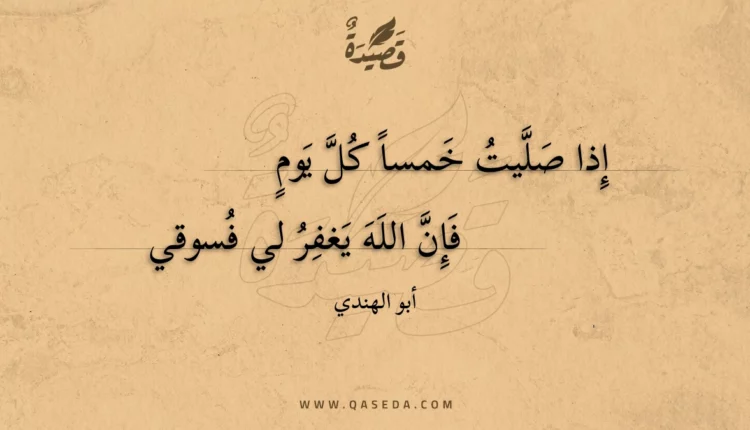 قَصِيدَةٌ
إِذا صَلَّيتُ خَمساً كُلَّ يَومٍ
فَإِنَّ اللَهَ يَغفِرُ لي فُسوقي
أبو الهندي
WWW.QASEDA.COM